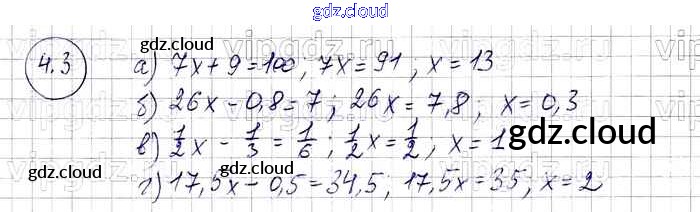 gdz.cloud
4.3
а) 7x + 9 = 100; 7x = 91, x = 13
б) 26x - 0,8 = 7; 26x = 7,8; x = 0,3
в) 1/2 x - 1/3 = 1/6; 1/2 x = 1/2, x = 1
г) 17,5x - 0,5 = 34,5, 17,5x = 35, x = 2
gdz.cloud
gdz.cloud
gdz.cloud
gdz.cloud
gdz.cloud
gdz.cloud